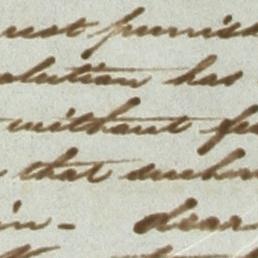 ust punish
olution has
without fu
that such
in- dear